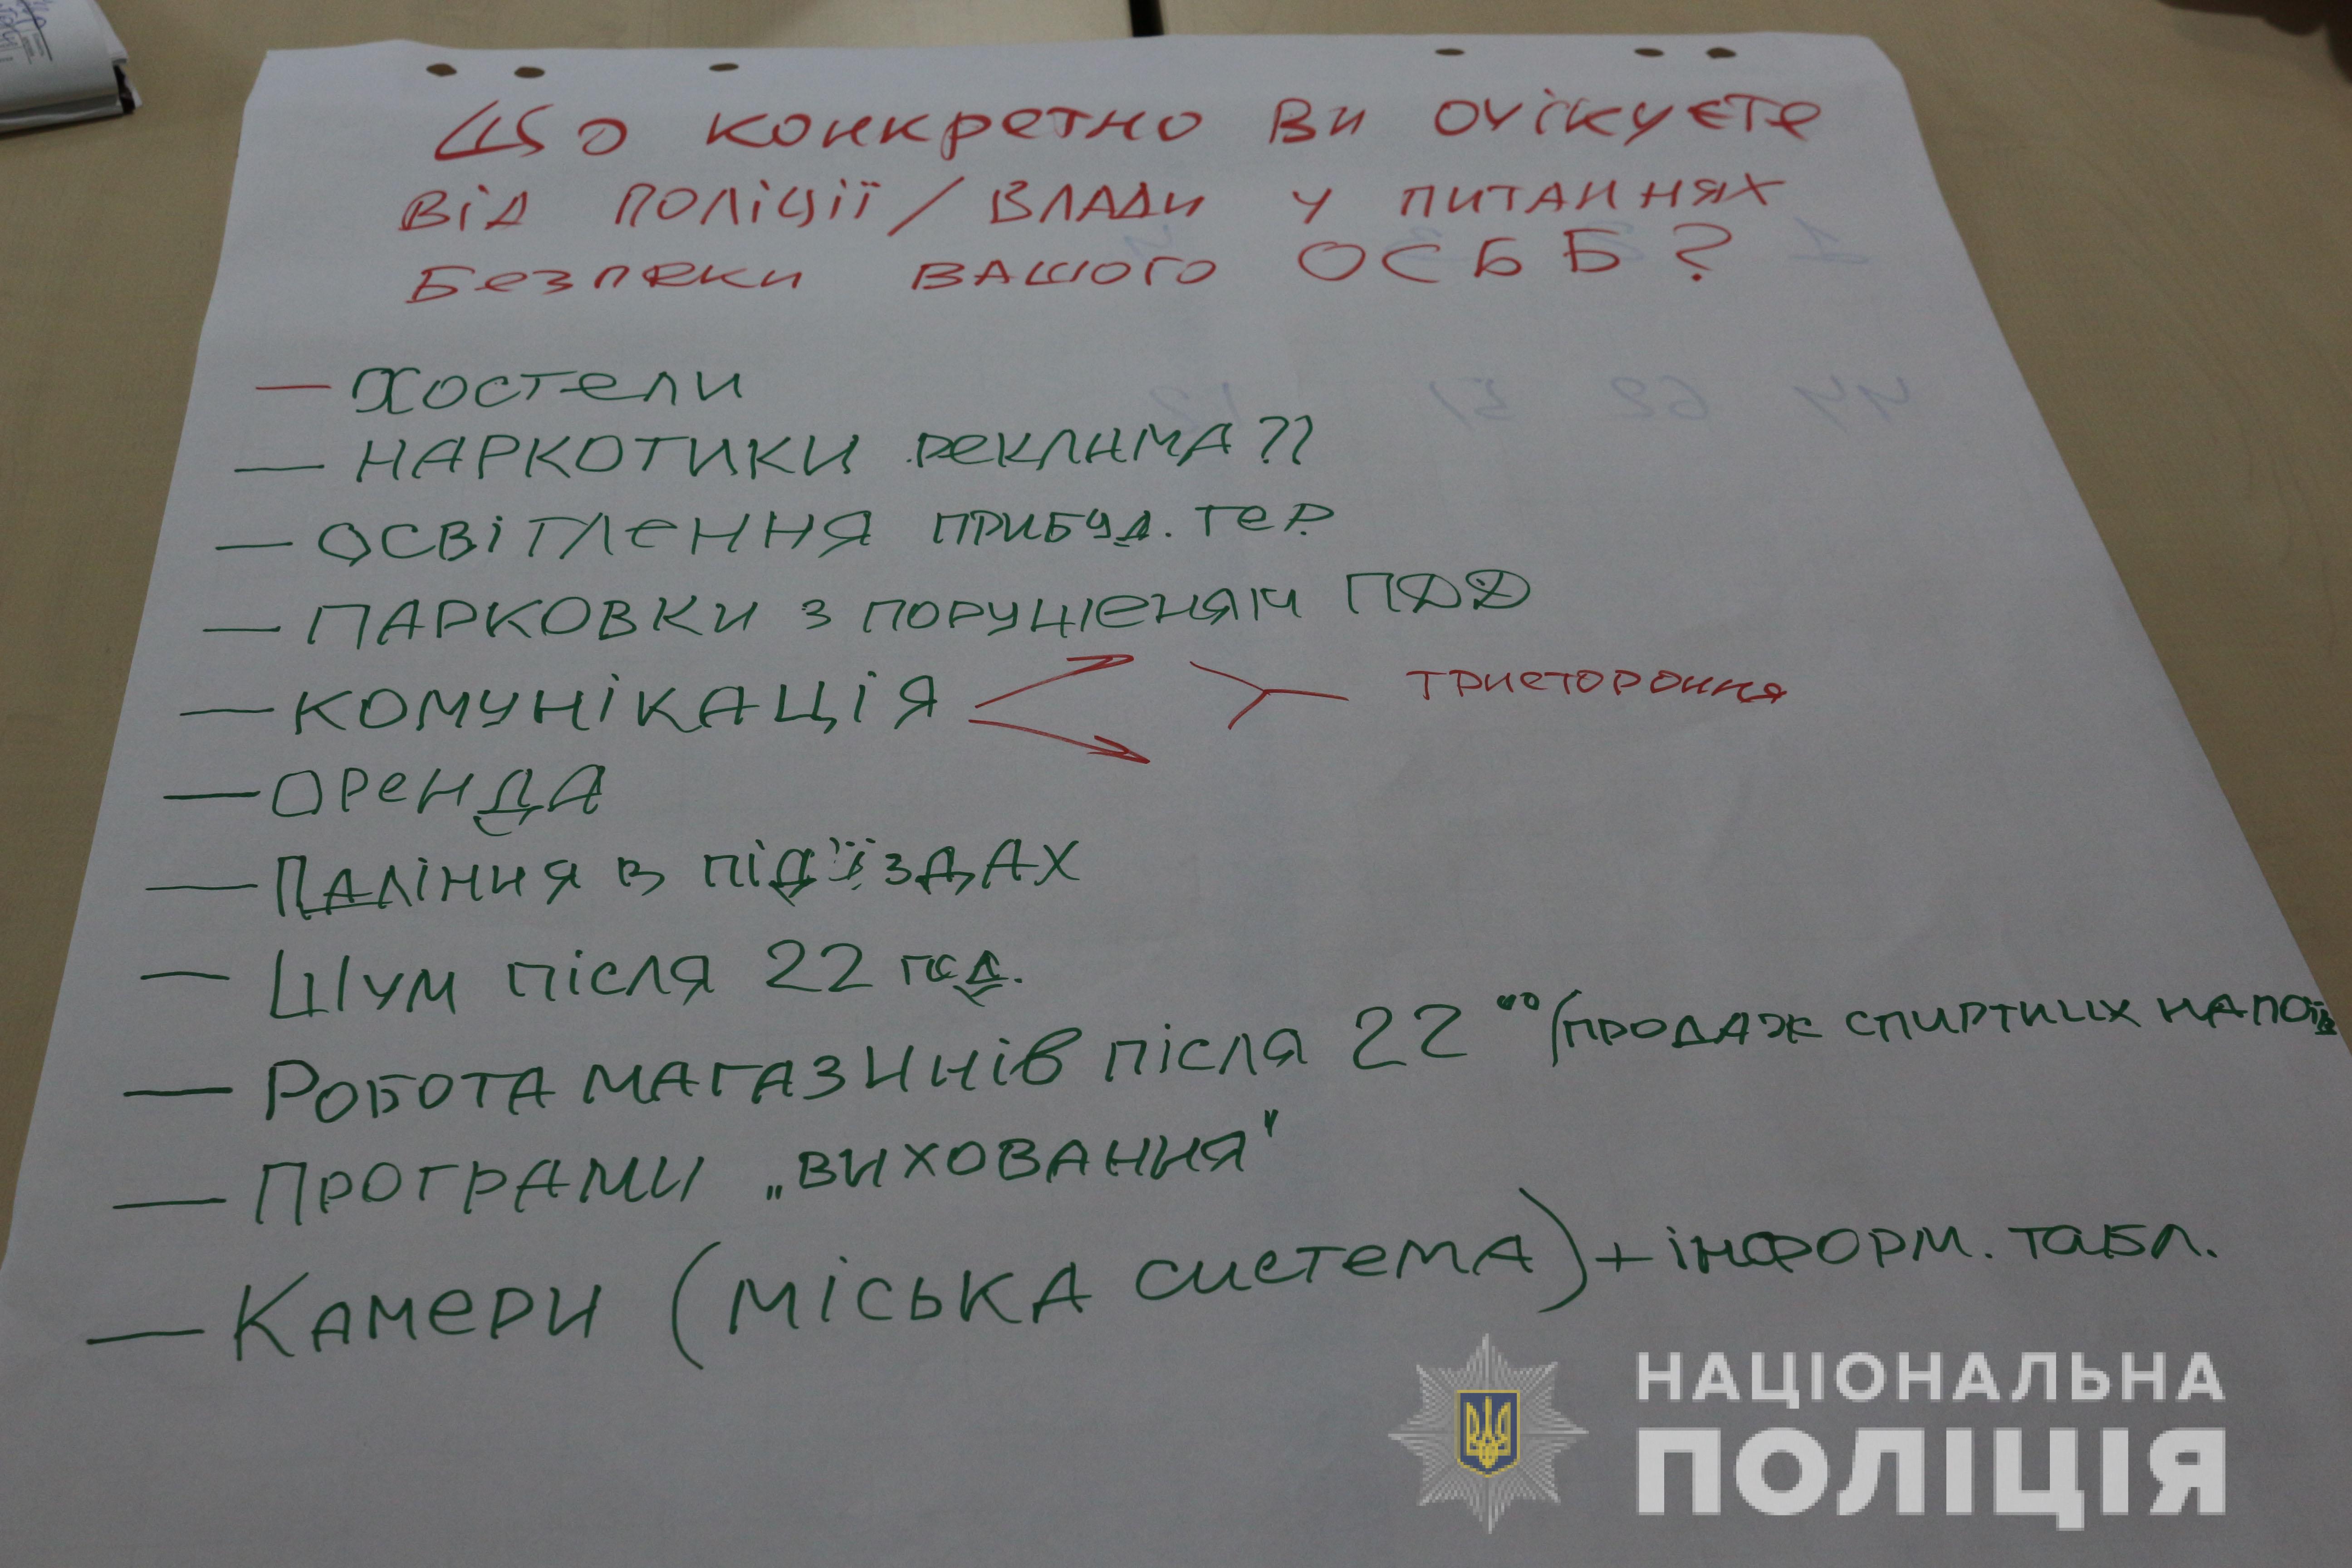 Що конкретно ви очікуєте
від поліції / влади у питаннях
безпеки вашого ОСББ?
— Хостели
— Наркотики реклама??
— Освітлення прибуд. тер.
— Парковки з порушеням ПДД
— Комунікація тристороння
— Оренда
— Паління в під'їздах
— Шум після 22 год.
— Робота магазинів після 22 ⁰⁰ (продаж спиртних напоїв
— Програми „виховання"
— Камери (міська система) + інформ. табл.
НАЦІОНАЛЬНА
ПОЛІЦІЯ